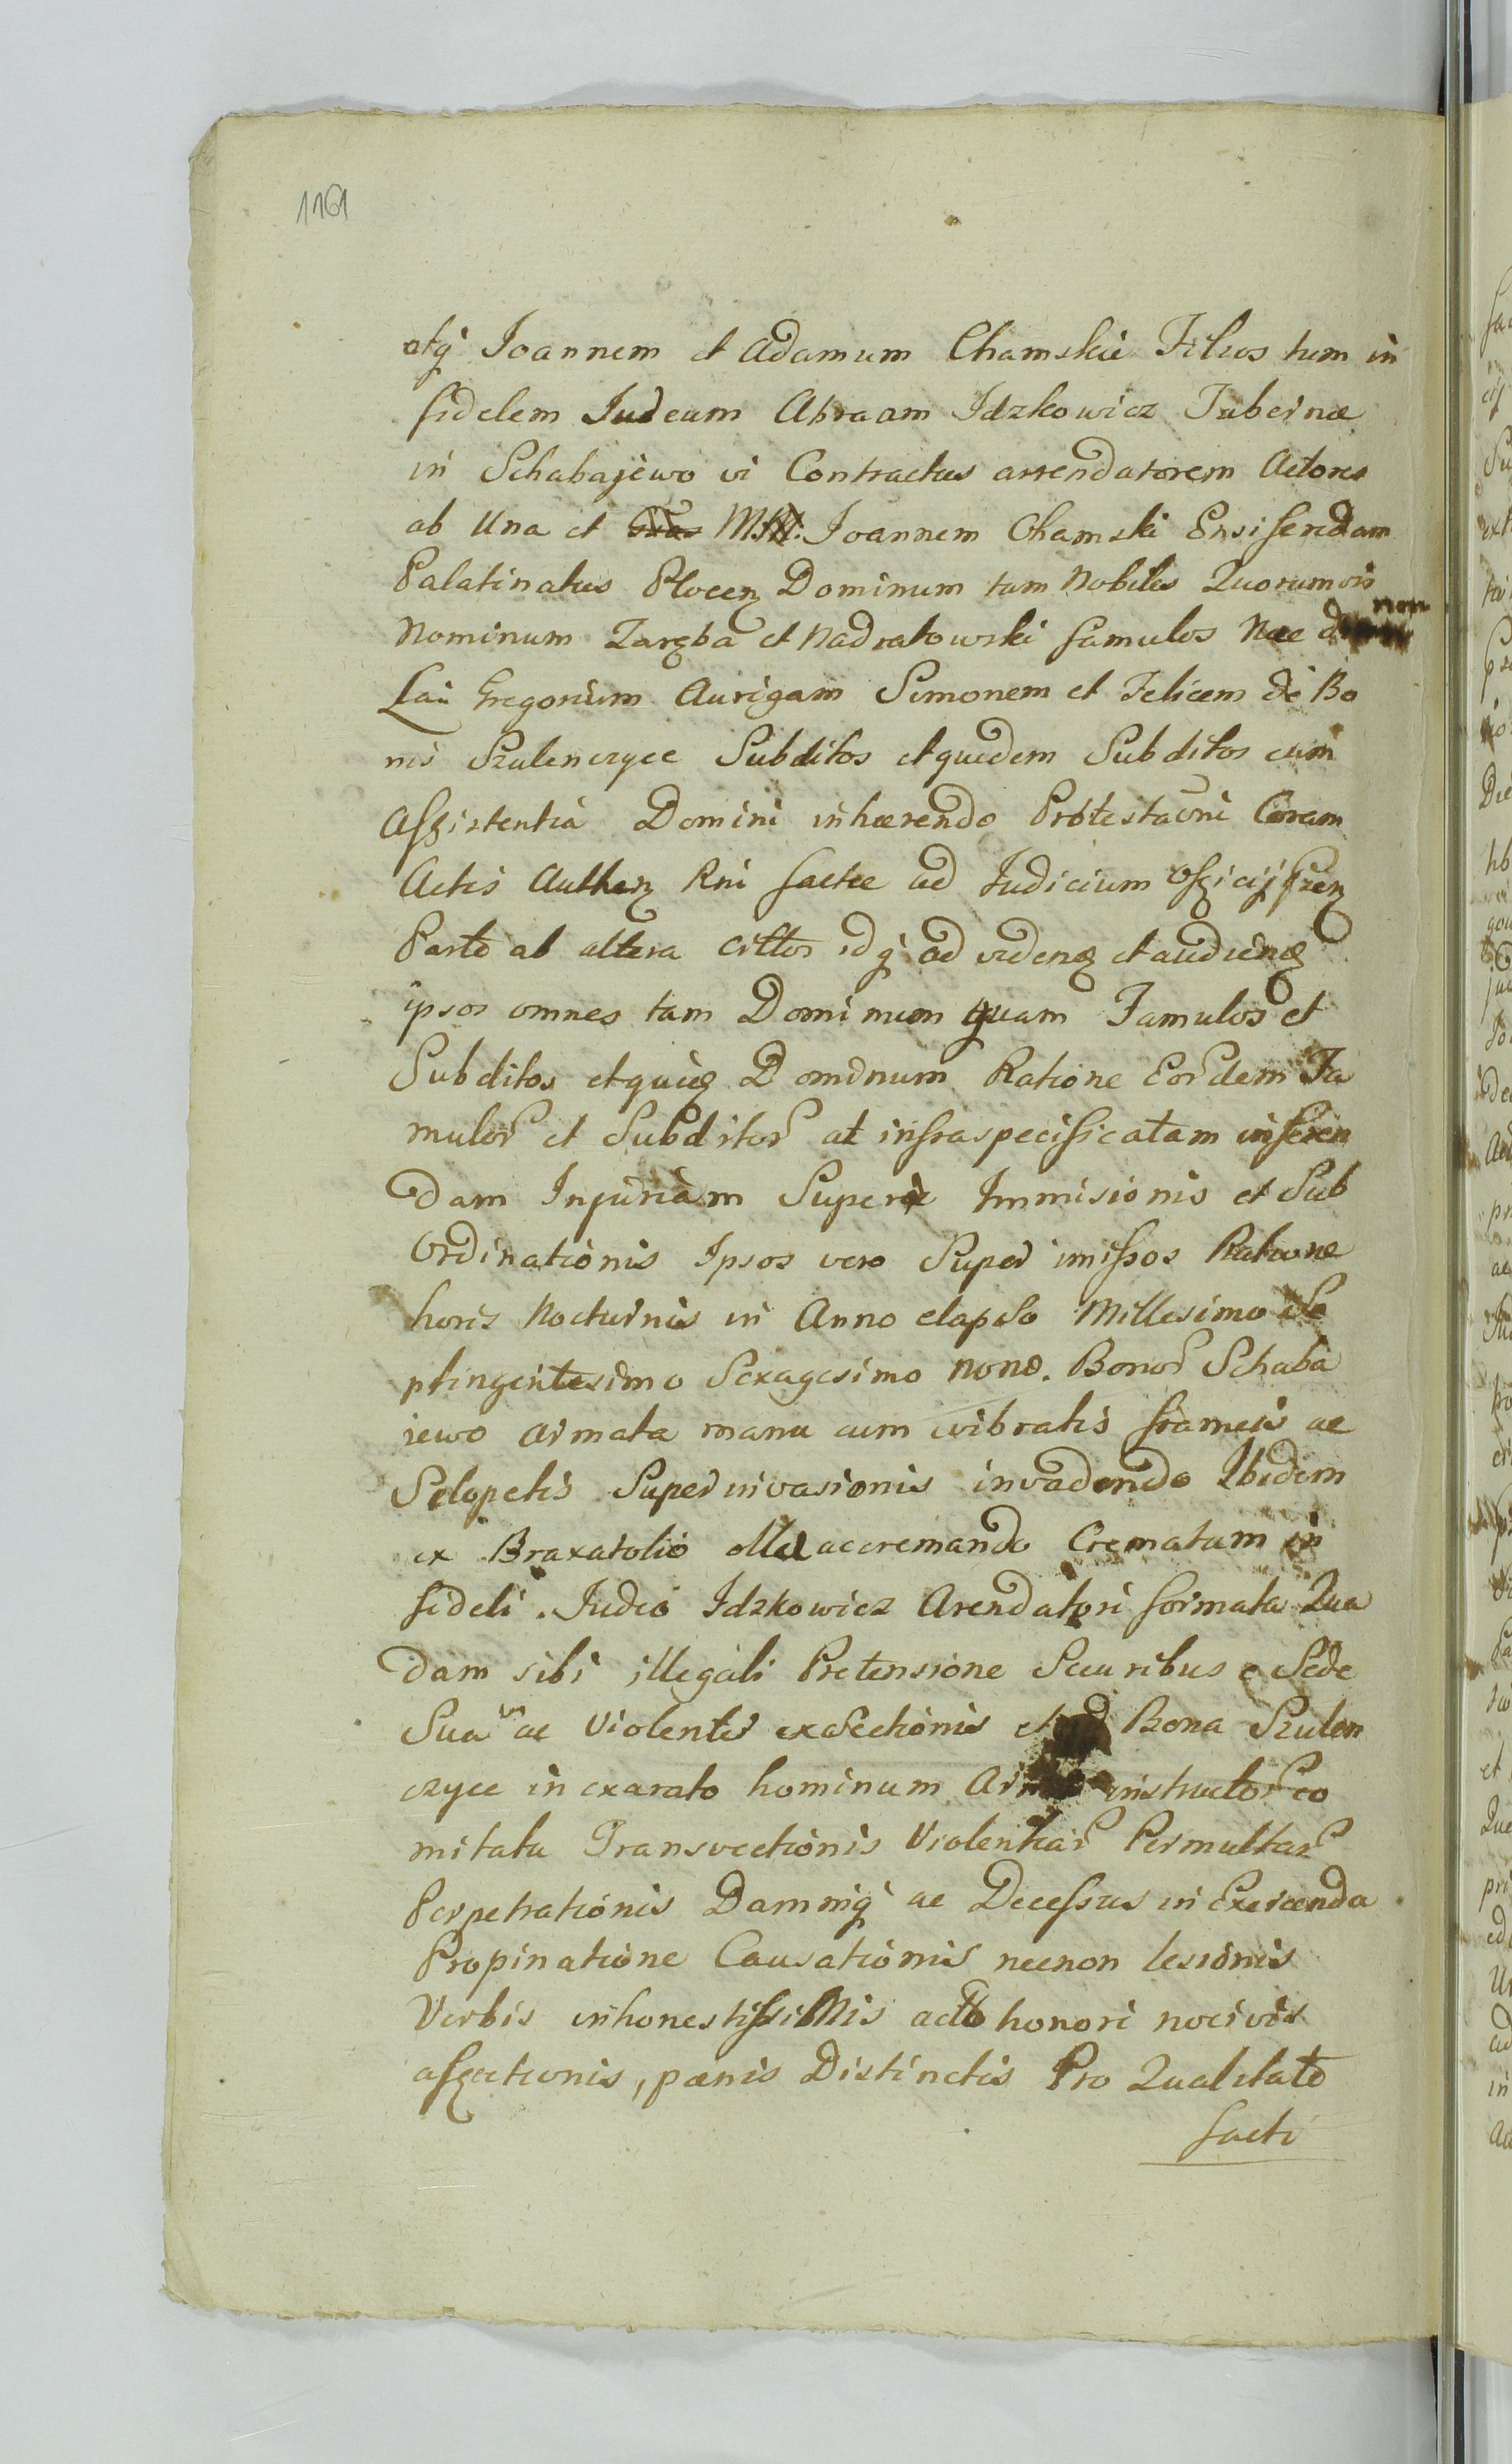 1161
atq Joannem et Adamum Chamskie Filios tum in
fidelem Judeum Abraam Idzkowicz Tabernæ
in Schabajewo vi Contractus arrendatorem Actores
ab Una et M: Joannem Chamski Ensiferidam
Palatinatus Plocen Dominum tam Nobiles Quorumvis
Nominum Zaręba et Nadratowski famulos Nec non
Lai Gregorium Aurigam Simonem et Felicem de Bo
nis Szulenczyce Subditos et quidem Subditos cum
Assistentia Domini inhærendo Protestaoni Coram
Actis Authen Rni factæ ad Judicium Officij pñzen
Parte ab altera cittos idq ad viden et audien
ipsos omnes tam Dominum quam Famulos et
Subditos et quidem Dominum Ratione Eordem Fa
mulor et Subditor at infraspecificatam inferen
dam Injuriam Super Immisionis et Sub
Ordinationis Ipsos vero Super imissos Ratione
horis Nocturnis in Anno elapso Millesimo Se
ptingentesimo Sexagesimo nono. Bonor Schaba
jewo armata manu cum vibratis frameis ac
Sclopetis Super invasionis invadendo Ibidem
ex Braxatolio olla accremando Crematum in
fideli Judeo Idzkowicz Arendatori formata Qua
dam sibi illegali Pretensione Securibus e Sede
Sua ac Violenter exsectionis et ad Bona Szulen
czyce in exarato hominum instructor co
mitatu Transvectionis Violentiar Permultar
Perpetrationis Damniq ac Decessus in Exercenda
Propinatione Causationis necnon lesionis
Verbis inhonestissimis actto honori nocivis
affectionis, pænis Distinctis Pro Qualitate
facti